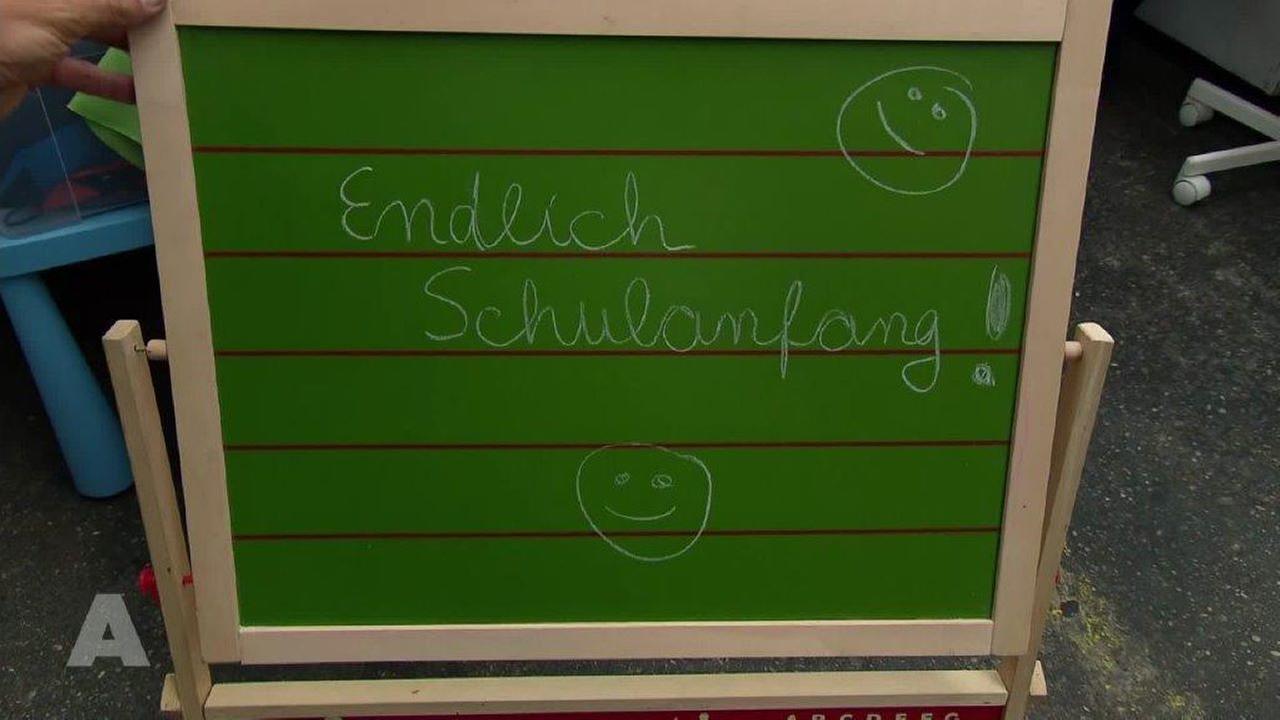 Endlich
Schulanfang!
A
ABCDEFG